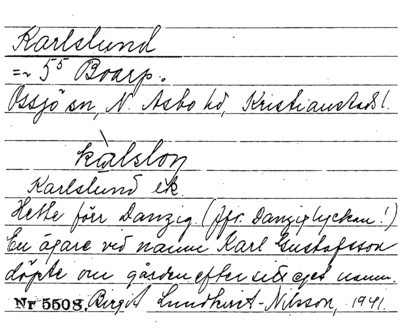 Karlslund
=~ 5⁵ Boarp.
Össjö sn, N. Åsbo hd, Kristianstads l.
kàlsloŋ
Karlslund ek.
Hette förr Danzig. (jfr. Danziglyckan!)
En ägare vid namn Karl Gustafsson
döpte om gården efter sitt eget namn.
Nr 5508. Birgit Lundkvist-Nilsson, 1941.